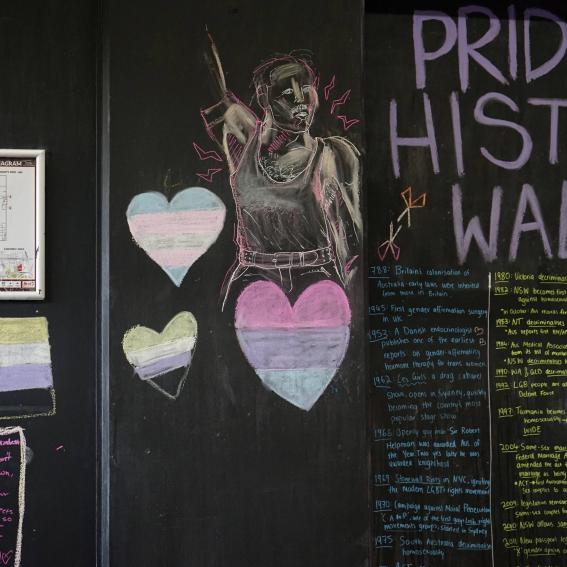 AGRAM
PRID
HIST
WAL
788: Britains colonisation of
Australia - early laws were inherited
from those in Britain.
1945: First gender affirmation surgery
in UK.
1953: A Danish endocrinologist
publishes one of the earliest
reports on gender-affirming
hormone therapy for trans women.
1962: Les Girls, a drag cabaret
show, opens in Sydney, quickly
becoming the country's most
popular stage show
1965: Openly gay man Sir Robert
Helpman was awarded Aus. of
the Year. Two yrs later he was
awarded knighthood
1969: Stonewall Riots in NYC, igniting
the modern LGBT+ rights movement
1970: Campaign against Moral Persecution
(C.A.M.P), one of the first gay rights
movements groups, started in Sydney
1975: South Australia decriminalise
homosexuality
1980: Victoria decriminal
1982: NSW becomes first
against homosexual
1983: NT decriminalises
1984: Aus Medical Associa
*NSW decriminalises
1990: WA & QLD decrimina
1992: LGB people are al
Defence Force
1997: Tasmania becomes
homosexuality
WIDE
2004: Same-sex mar
Federal Marriage A
marriage as being
2010: NSW allows same
2011: New passport le
'X' gender option